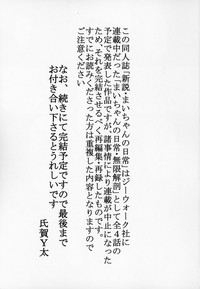 この同人誌『新説・まいちゃんの日常』はジーウォーク社に
連載中だった「まいちゃんの日常・無限解剖」として全4話の
予定で発表した作品ですが、諸事情により連載が中止になった
ため、それを完結させるべく再編集・再録したものです。
すでにお読みくださった方は重複した内容となりますので
ご注意ください
なお、続きにて完結予定ですので最後まで
お付き合い下さるとうれしいです
氏賀Y太